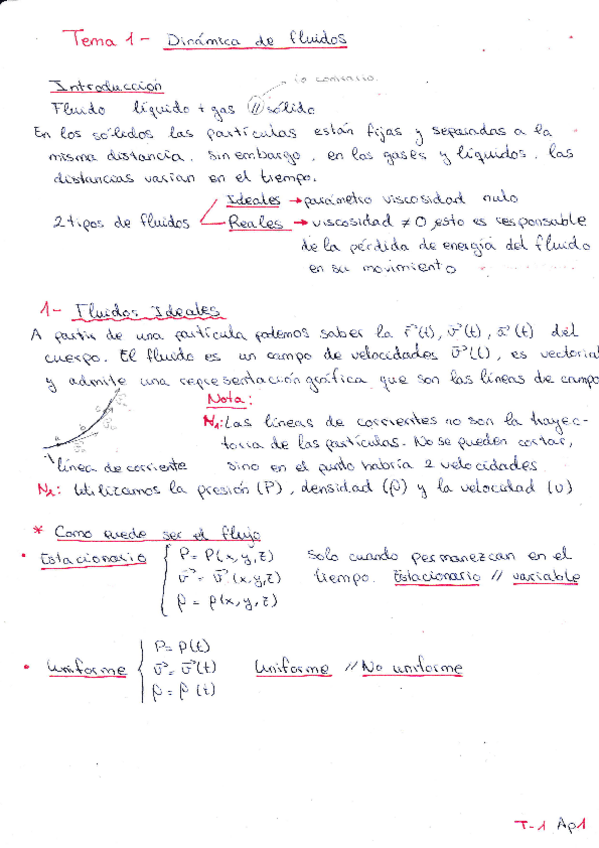 Tema 1 - Dinámica de fluidos
lo contrario.
Introducción
Fluido líquido + gas // sólido
En los sólidos las partículas están fijas y separadas a la
misma distancia. Sin embargo, en los gases y líquidos, las
distancias varían en el tiempo.
2 tipos de fluidos
Ideales → parámetro viscosidad nulo
Reales → viscosidad ≠ 0, esto es responsable
de la pérdida de energía del fluido
en su movimiento
1- Fluidos Ideales
A partir de una partícula podemos saber la r⃗(t), v⃗(t), a⃗(t) del
cuerpo. El fluido es un campo de velocidades v⃗(t), es vectorial
y admite una representación gráfica que son las líneas de campo
Nota:
N1: Las líneas de corrientes no son la trayec-
toria de las partículas. No se pueden cortar,
sino en el punto habría 2 velocidades
línea de corriente
N2: Utilizamos la presión (P), densidad (ρ) y la velocidad (v)
* Como puede ser el flujo
• Estacionario { P = P(x,y,z) Solo cuando permanezcan en el
v⃗ = v⃗(x,y,z) tiempo. Estacionario // variable
ρ = ρ(x,y,z)
• Uniforme { P = P(t)
v⃗ = v⃗(t) Uniforme // No uniforme
ρ = ρ(t)
T-1 Ap1